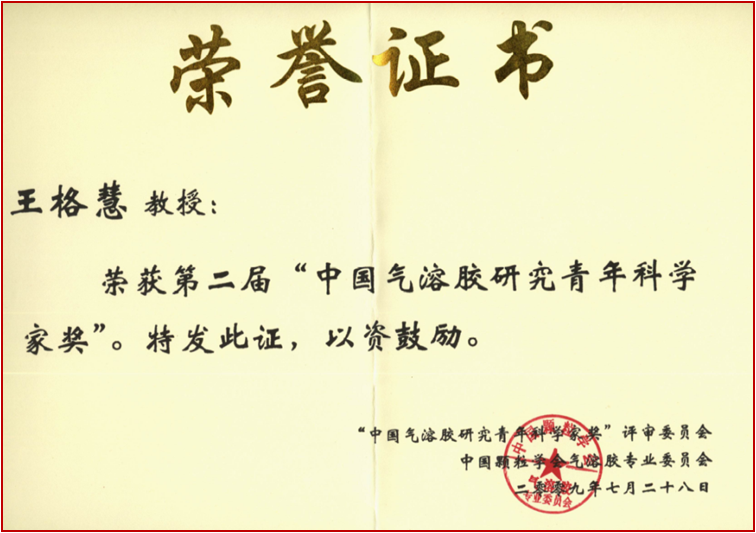 荣誉证书
王格慧 教授：
荣获第二届“中国气溶胶研究青年科学
家奖”。特发此证，以资鼓励。
“中国气溶胶研究青年科学家奖”评审委员会
中国颗粒学会气溶胶专业委员会
二零零九年七月二十八日
中国颗粒学会
气溶胶
专业委员会